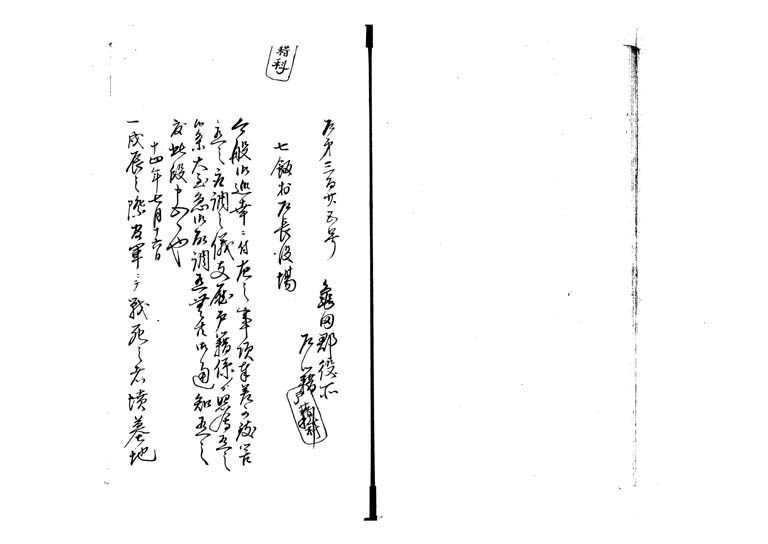 籍科
第三百廿五号
龜田郡役所
戸籍
七飯村戸長役場
今般御巡幸ニ付左之事項
右調之儀支庁戸籍係ヨリ照會有之
候条大至急御取調御通知有之
度此段申入候也
十四年七月十六日
一戊辰之際官軍ニテ戰死之者墳墓地